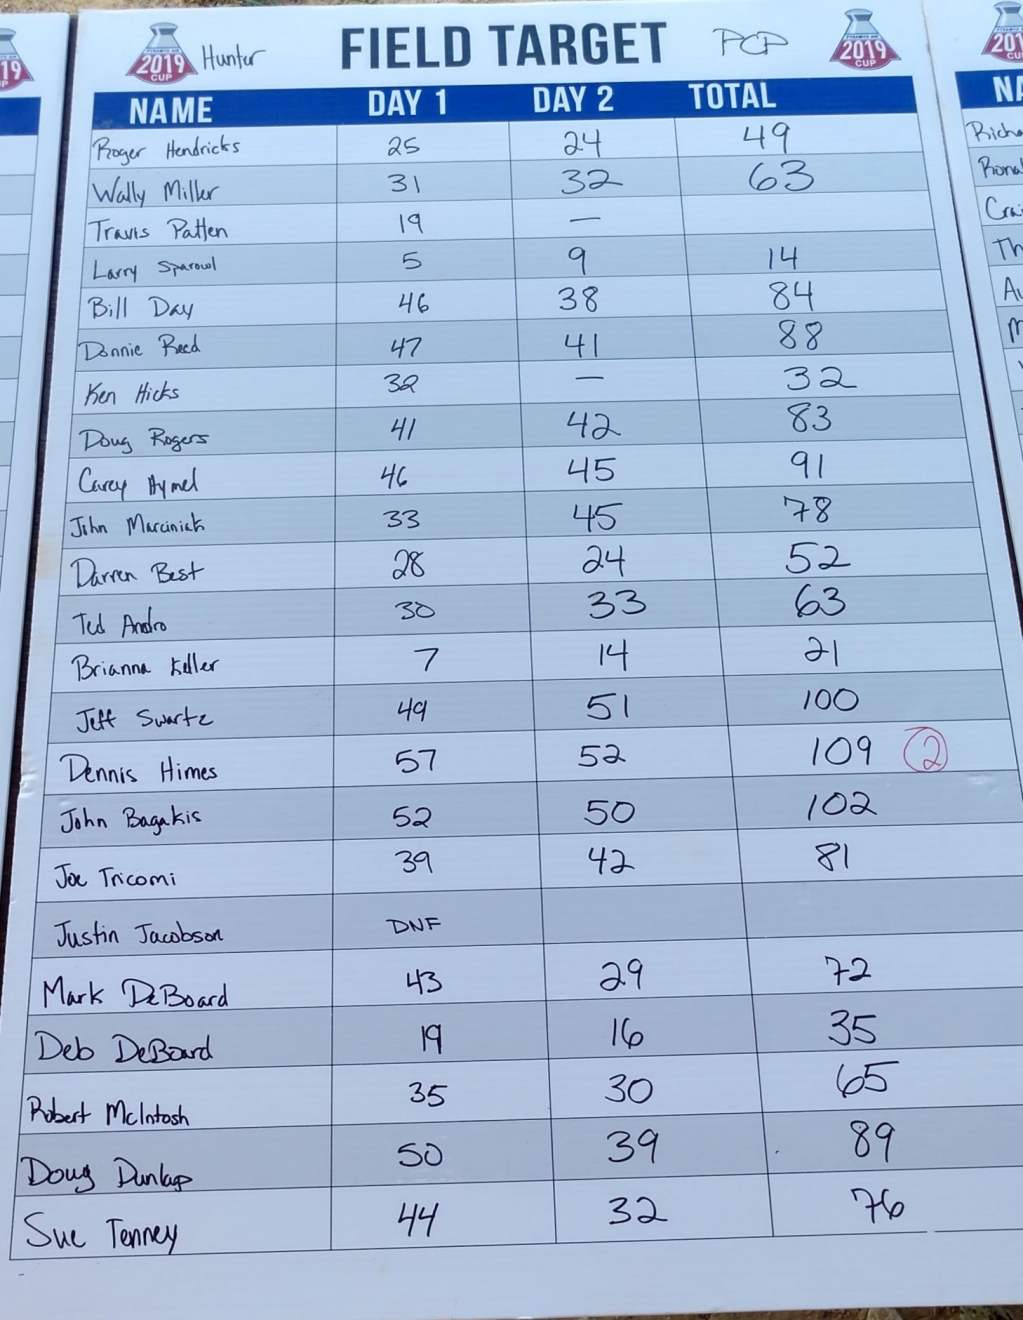 2019 CUP Hunter FIELD TARGET PCP PYRAMYD AIR 2019 CUP
NAME DAY 1 DAY 2 TOTAL
Roger Hendricks 25 24 49
Wally Miller 31 32 63
Travis Patten 19 —
Larry Sparowl 5 9 14
Bill Day 46 38 84
Donnie Reed 47 41 88
Ken Hicks 32 — 32
Doug Rogers 41 42 83
Carey Hymel 46 45 91
John Marciniak 33 45 78
Darren Best 28 24 52
Ted Andro 30 33 63
Brianna Keller 7 14 21
Jeff Swartz 49 51 100
Dennis Himes 57 52 109 2
John Bagakis 52 50 102
Joe Tricomi 39 42 81
Justin Jacobson DNF
Mark DeBoard 43 29 72
Deb DeBoard 19 16 35
Robert McIntosh 35 30 65
Doug Dunlap 50 39 89
Sue Tenney 44 32 76